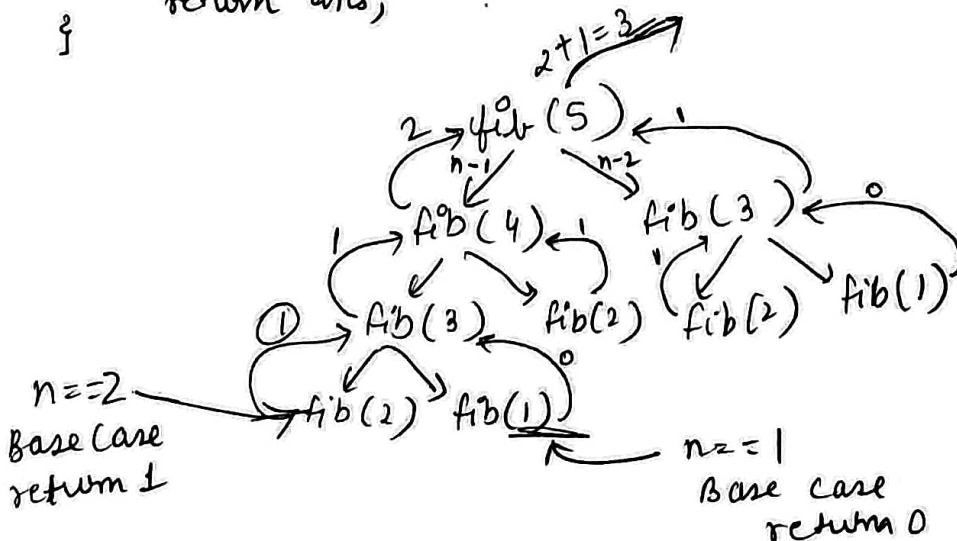 return ans;
}
2+1=3
2 fib(5) 1
n-1 n-2
1 fib(4) 1 fib(3) 0
① fib(3) fib(2) 1 fib(2) fib(1)
n==2 fib(2) fib(1) 0
Base Case
return 1
n==1
Base case
return 0